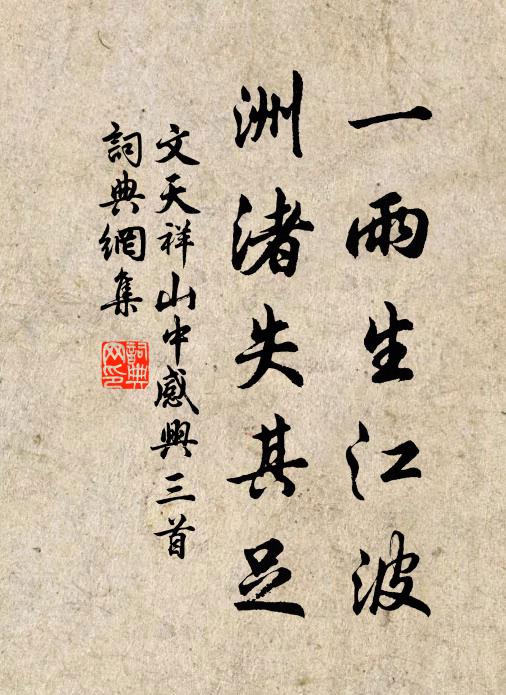 一雨生江波
洲渚失其足
文天祥山中感興三首
詞典網集
詞典
网印